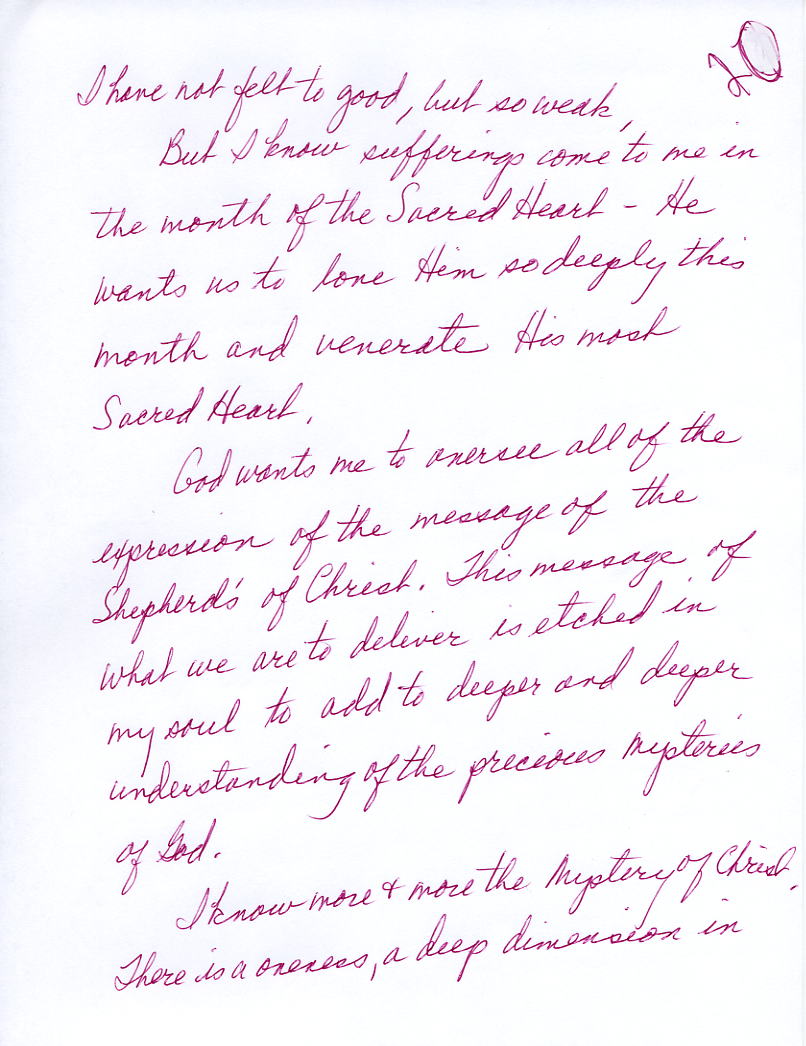 20
I have not felt to good, but so weak,
But I know sufferings come to me in
the month of the Sacred Heart - He
wants us to love Him so deeply this
month and venerate His most
Sacred Heart.
God wants me to oversee all of the
expression of the message of the
Shepherd's of Christ. This message of
what we are to deliver is etched in
my soul to add to deeper and deeper
understanding of the precious mysteries
of God.
I know more & more the Mystery of Christ.
There is a oneness, a deep dimension in